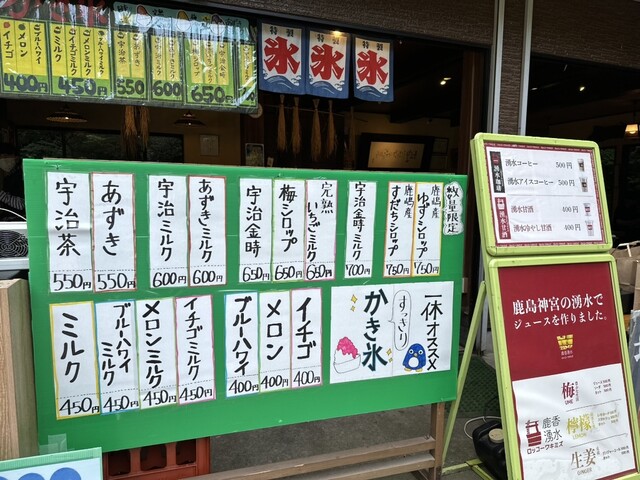 特製
氷
特製
氷
特製
氷
イチゴ
メロン
ブルーハワイ
400円
イチゴミルク
メロンミルク
ブルーハワイミルク
ミルク
450円
宇治茶
550円
600円
650円
数量限定
鹿嶋産
ゆずシロップ
750円
鹿嶋産
すだちシロップ
750円
宇治金時ミルク
700円
完熟
いちごミルク
650円
梅シロップ
650円
宇治金時
650円
あずきミルク
600円
宇治ミルク
600円
あずき
550円
宇治茶
550円
一休オススメ
すっきり
かき氷
イチゴ
400円
メロン
400円
ブルーハワイ
400円
イチゴミルク
450円
メロンミルク
450円
ブルーハワイ
ミルク
450円
ミルク
450円
湧水珈琲
湧水コーヒー 500円
湧水アイスコーヒー 500円
湧水甘酒
湧水甘酒 400円
湧水冷やし甘酒 400円
鹿島神宮の湧水で
ジュースを作りました。
鹿香
湧水
ロッコーワキミズ
梅
UME
檸檬
LEMON
生姜
GINGER